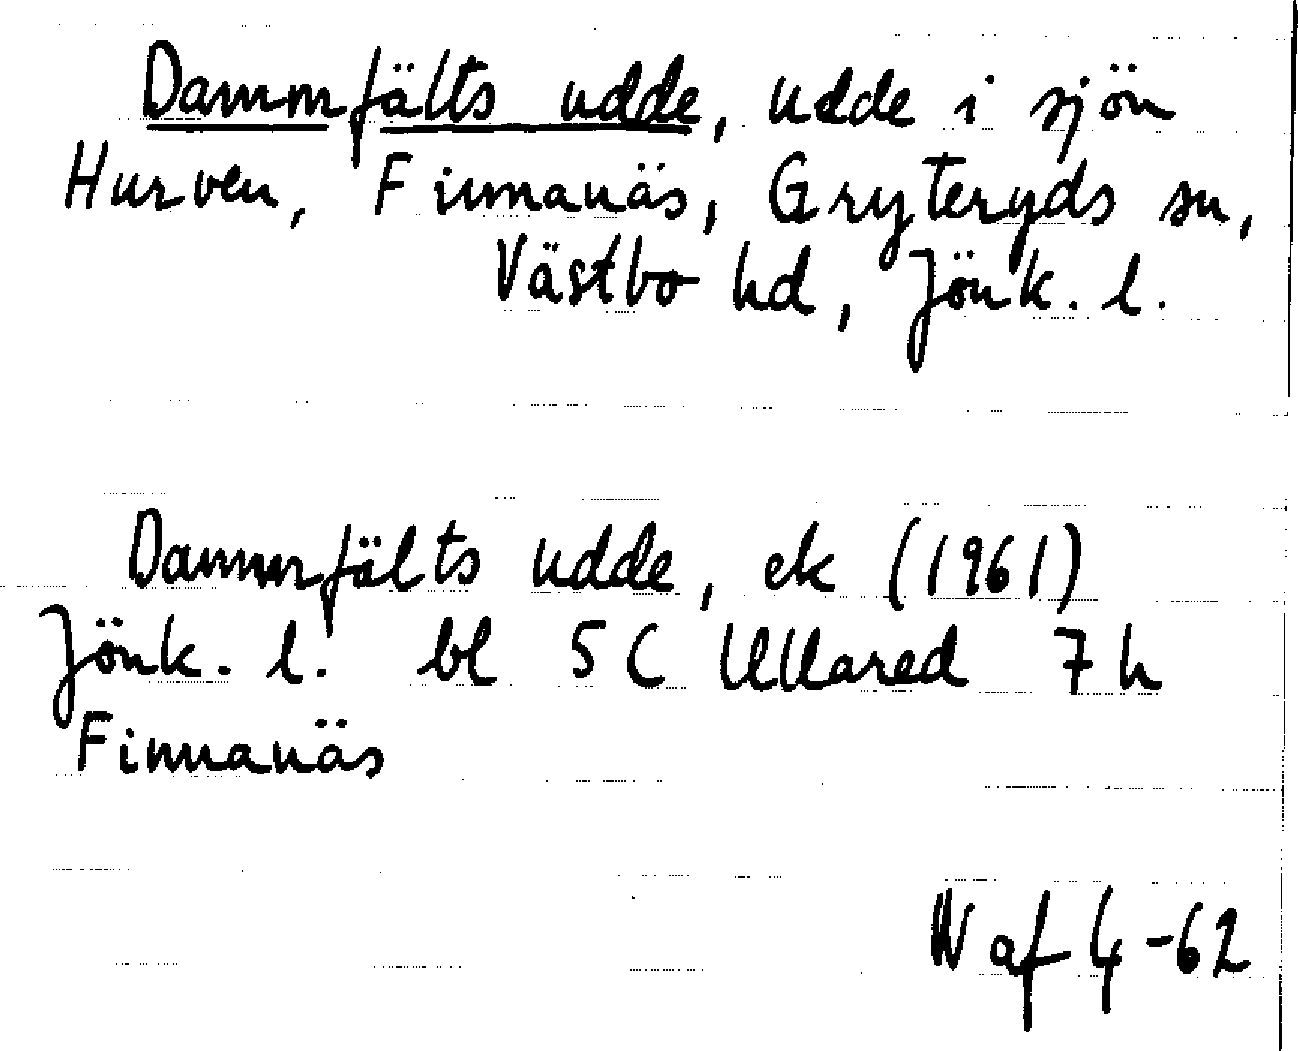 Dammfälts udde, udde i sjön
Hurven, Finnanäs, Gryteryds sn,
Västbo hd, Jönk. l.
Dammfälts udde, ek (1961)
Jönk. l. bl 5C Ullared 7h
Finnanäs
af 4-62